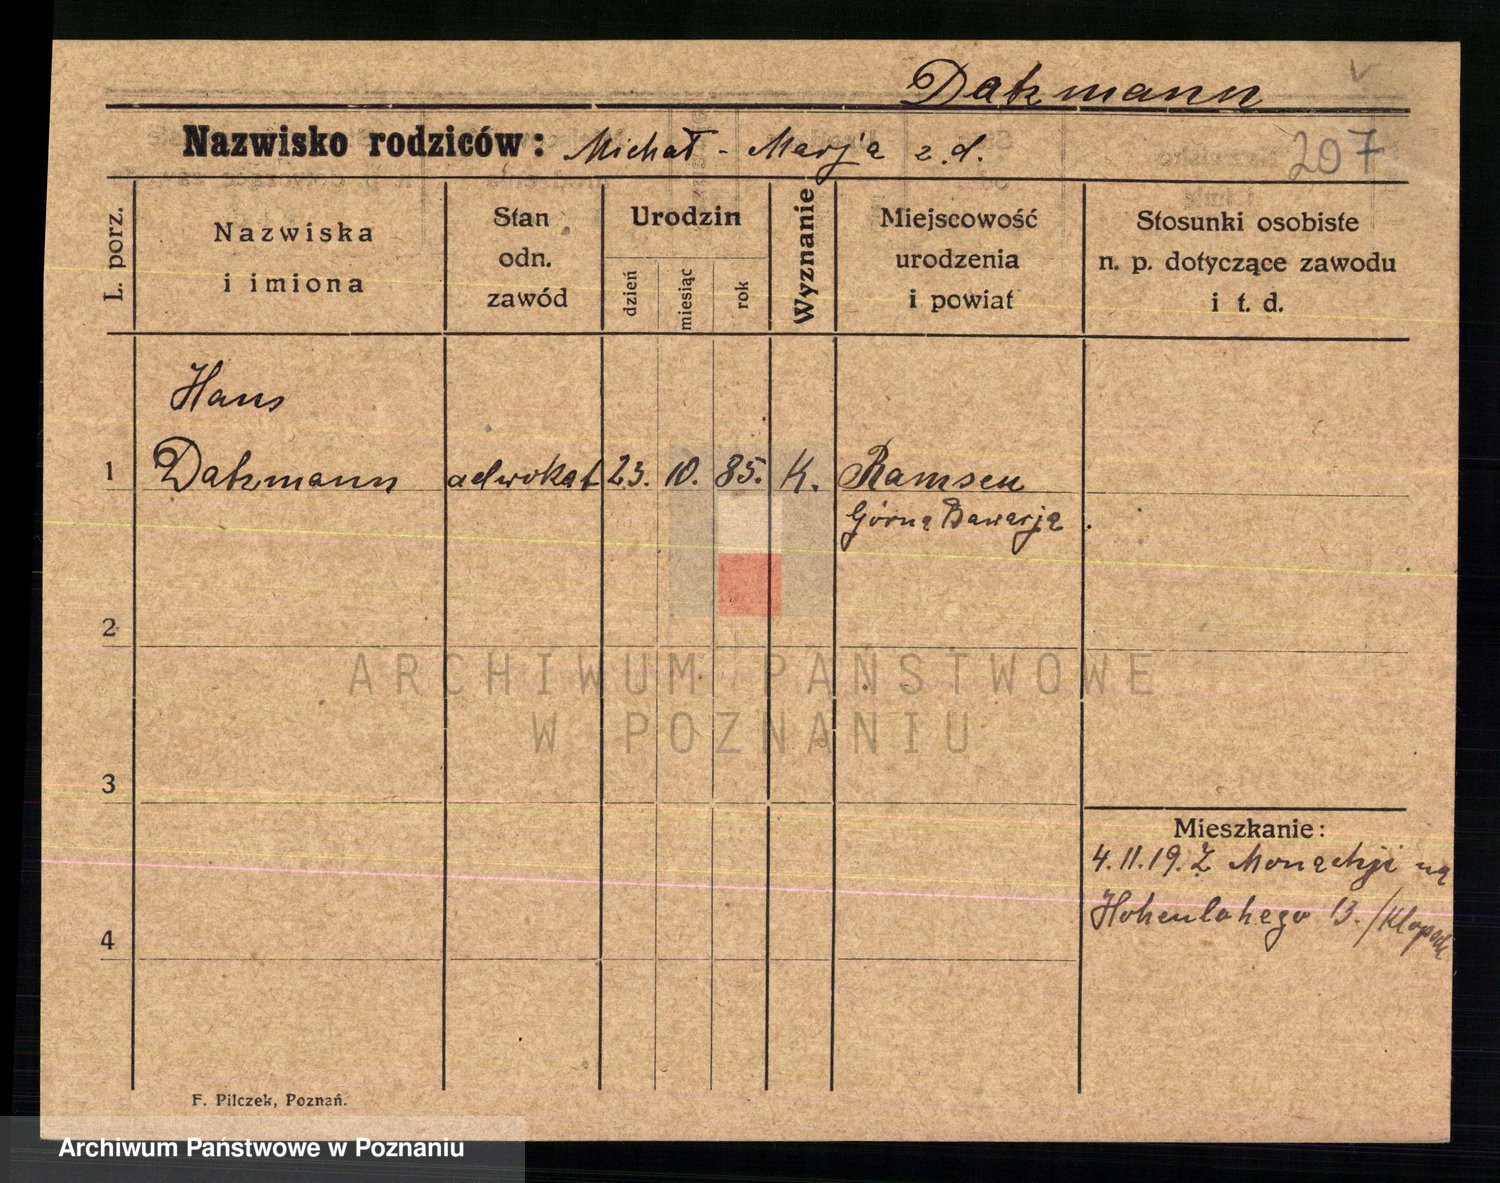 Datzmann
Nazwisko rodziców: Michał - Marja z. d.
207
L. porz.
Nazwiska
i imiona
Stan
odn.
zawód
Urodzin
dzień
miesiąc
rok
Wyznanie
Miejscowość
urodzenia
i powiat
Stosunki osobiste
n. p. dotyczące zawodu
i t. d.
Hans
1 Datzmann adwokat 23. 10. 85. K. Ramsen
Górna Bawarja
2
3
4
Mieszkanie:
4.11.19. Z Monachji na
Hohenlohego 13. /
F. Pilczek, Poznań.
ARCHIWUM PAŃSTWOWE
W POZNANIU
Archiwum Państwowe w Poznaniu